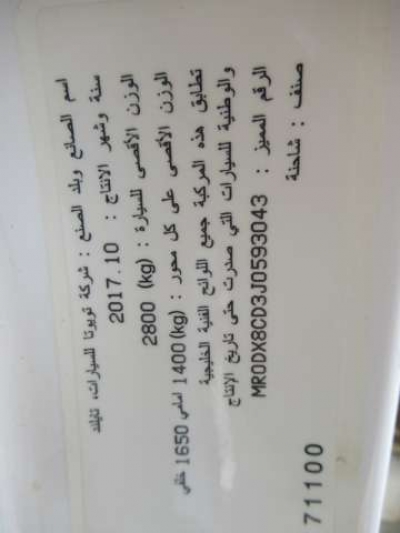 اسم الصانع وبلد الصنع : شركة تويوتا للسيارات، تايلاند
سنة وشهر الانتاج : 2017.10
الوزن الأقصى للسيارة : (kg) 2800
الوزن الأقصى على كل محور : (kg) 1400 امامي 1650 خلفي
تطابق هذه المركبة جميع اللوائح الفنية الخليجية
والوطنية للسيارات التي صدرت حتى تاريخ الإنتاج
الرقم المميز : MR0DX8CD3J0593043
صنف : شاحنة
71100